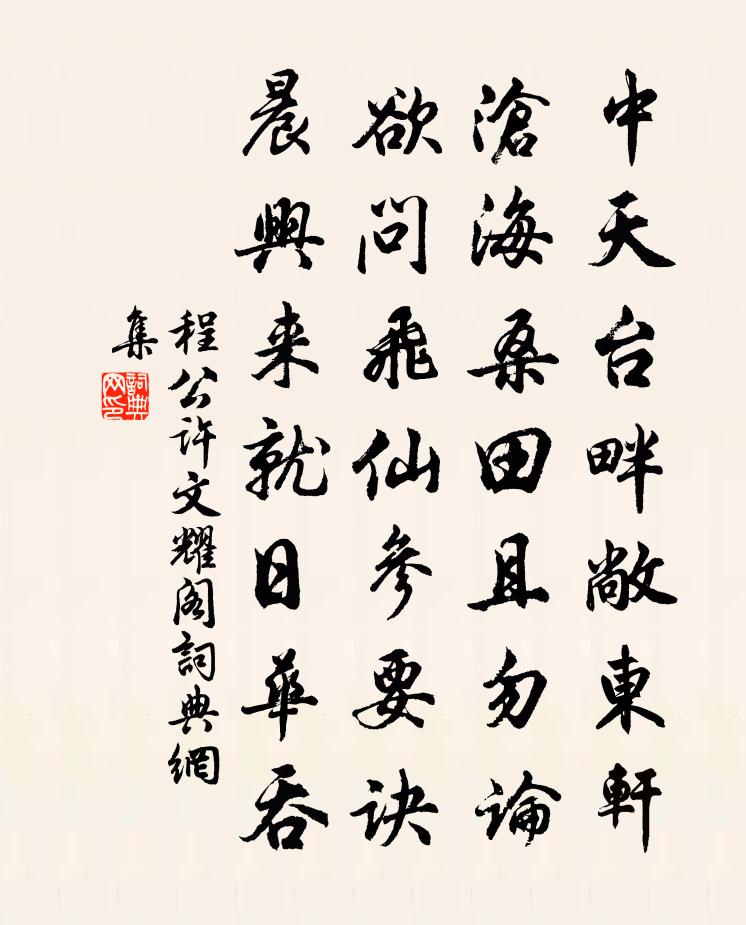 中天台畔敞東軒
滄海桑田且勿論
欲問飛仙參要訣
晨興来就日華吞
程公許文耀阁詞典網
集
詞典
网印